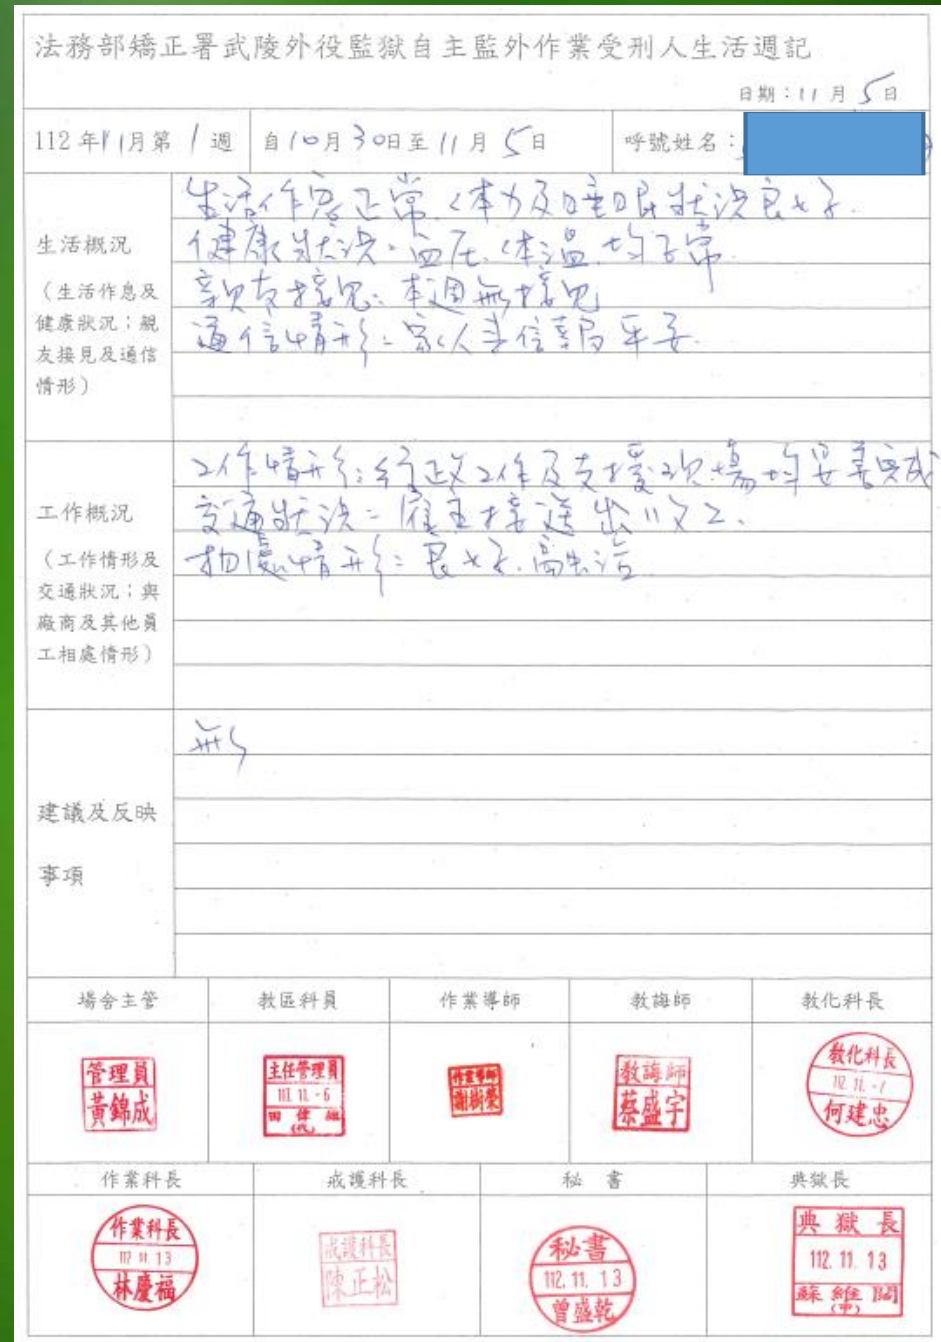 法務部矯正署武陵外役監獄自主監外作業受刑人生活週記
日期：11月5日
112年11月第1週 自10月30日至11月5日 呼號姓名：
生活概況
（生活作息及健康狀況；親友接見及通信情形）
生活作息正常、体力及睡眠狀況良好.
健康狀況：血压.体温.均正常
親友接見：本週無接見
通信情形：家人来信報平安.
工作概況
（工作情形及交通狀況；與廠商及其他員工相處情形）
工作情形：行政工作及支援現場均妥善完成
交通狀況：雇主接送出收工.
相處情形：良好.融洽
建議及反映
事項
無
場舍主管 教區科員 作業導師 教誨師 教化科長
管理員
黃錦成
主任管理員
112.11.-6
田偉
(代)
作業導師
謝樹榮
教誨師
蔡盛宇
教化科長
112.11.-7
何建忠
作業科長 戒護科長 秘書 典獄長
作業科長
112.11.13
林慶福
戒護科長
陳正松
秘書
112.11.13
曾盛乾
典獄長
112.11.13
蘇維
(甲)